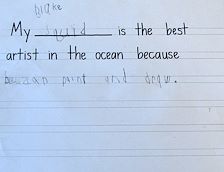 blake
My squid is the best
artist in the ocean because
paint and draw.